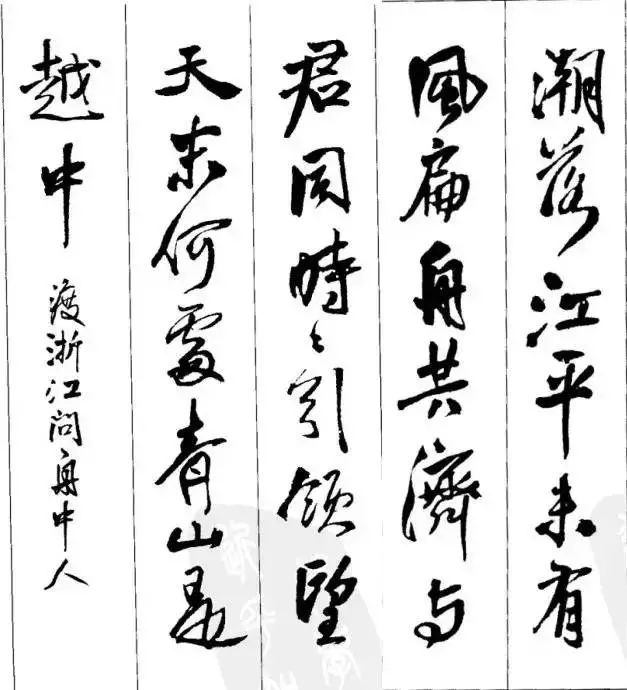 潮落江平未有
風扁舟共濟与
君同時〻引領望
天末何處青山是
越中 渡浙江問舟中人